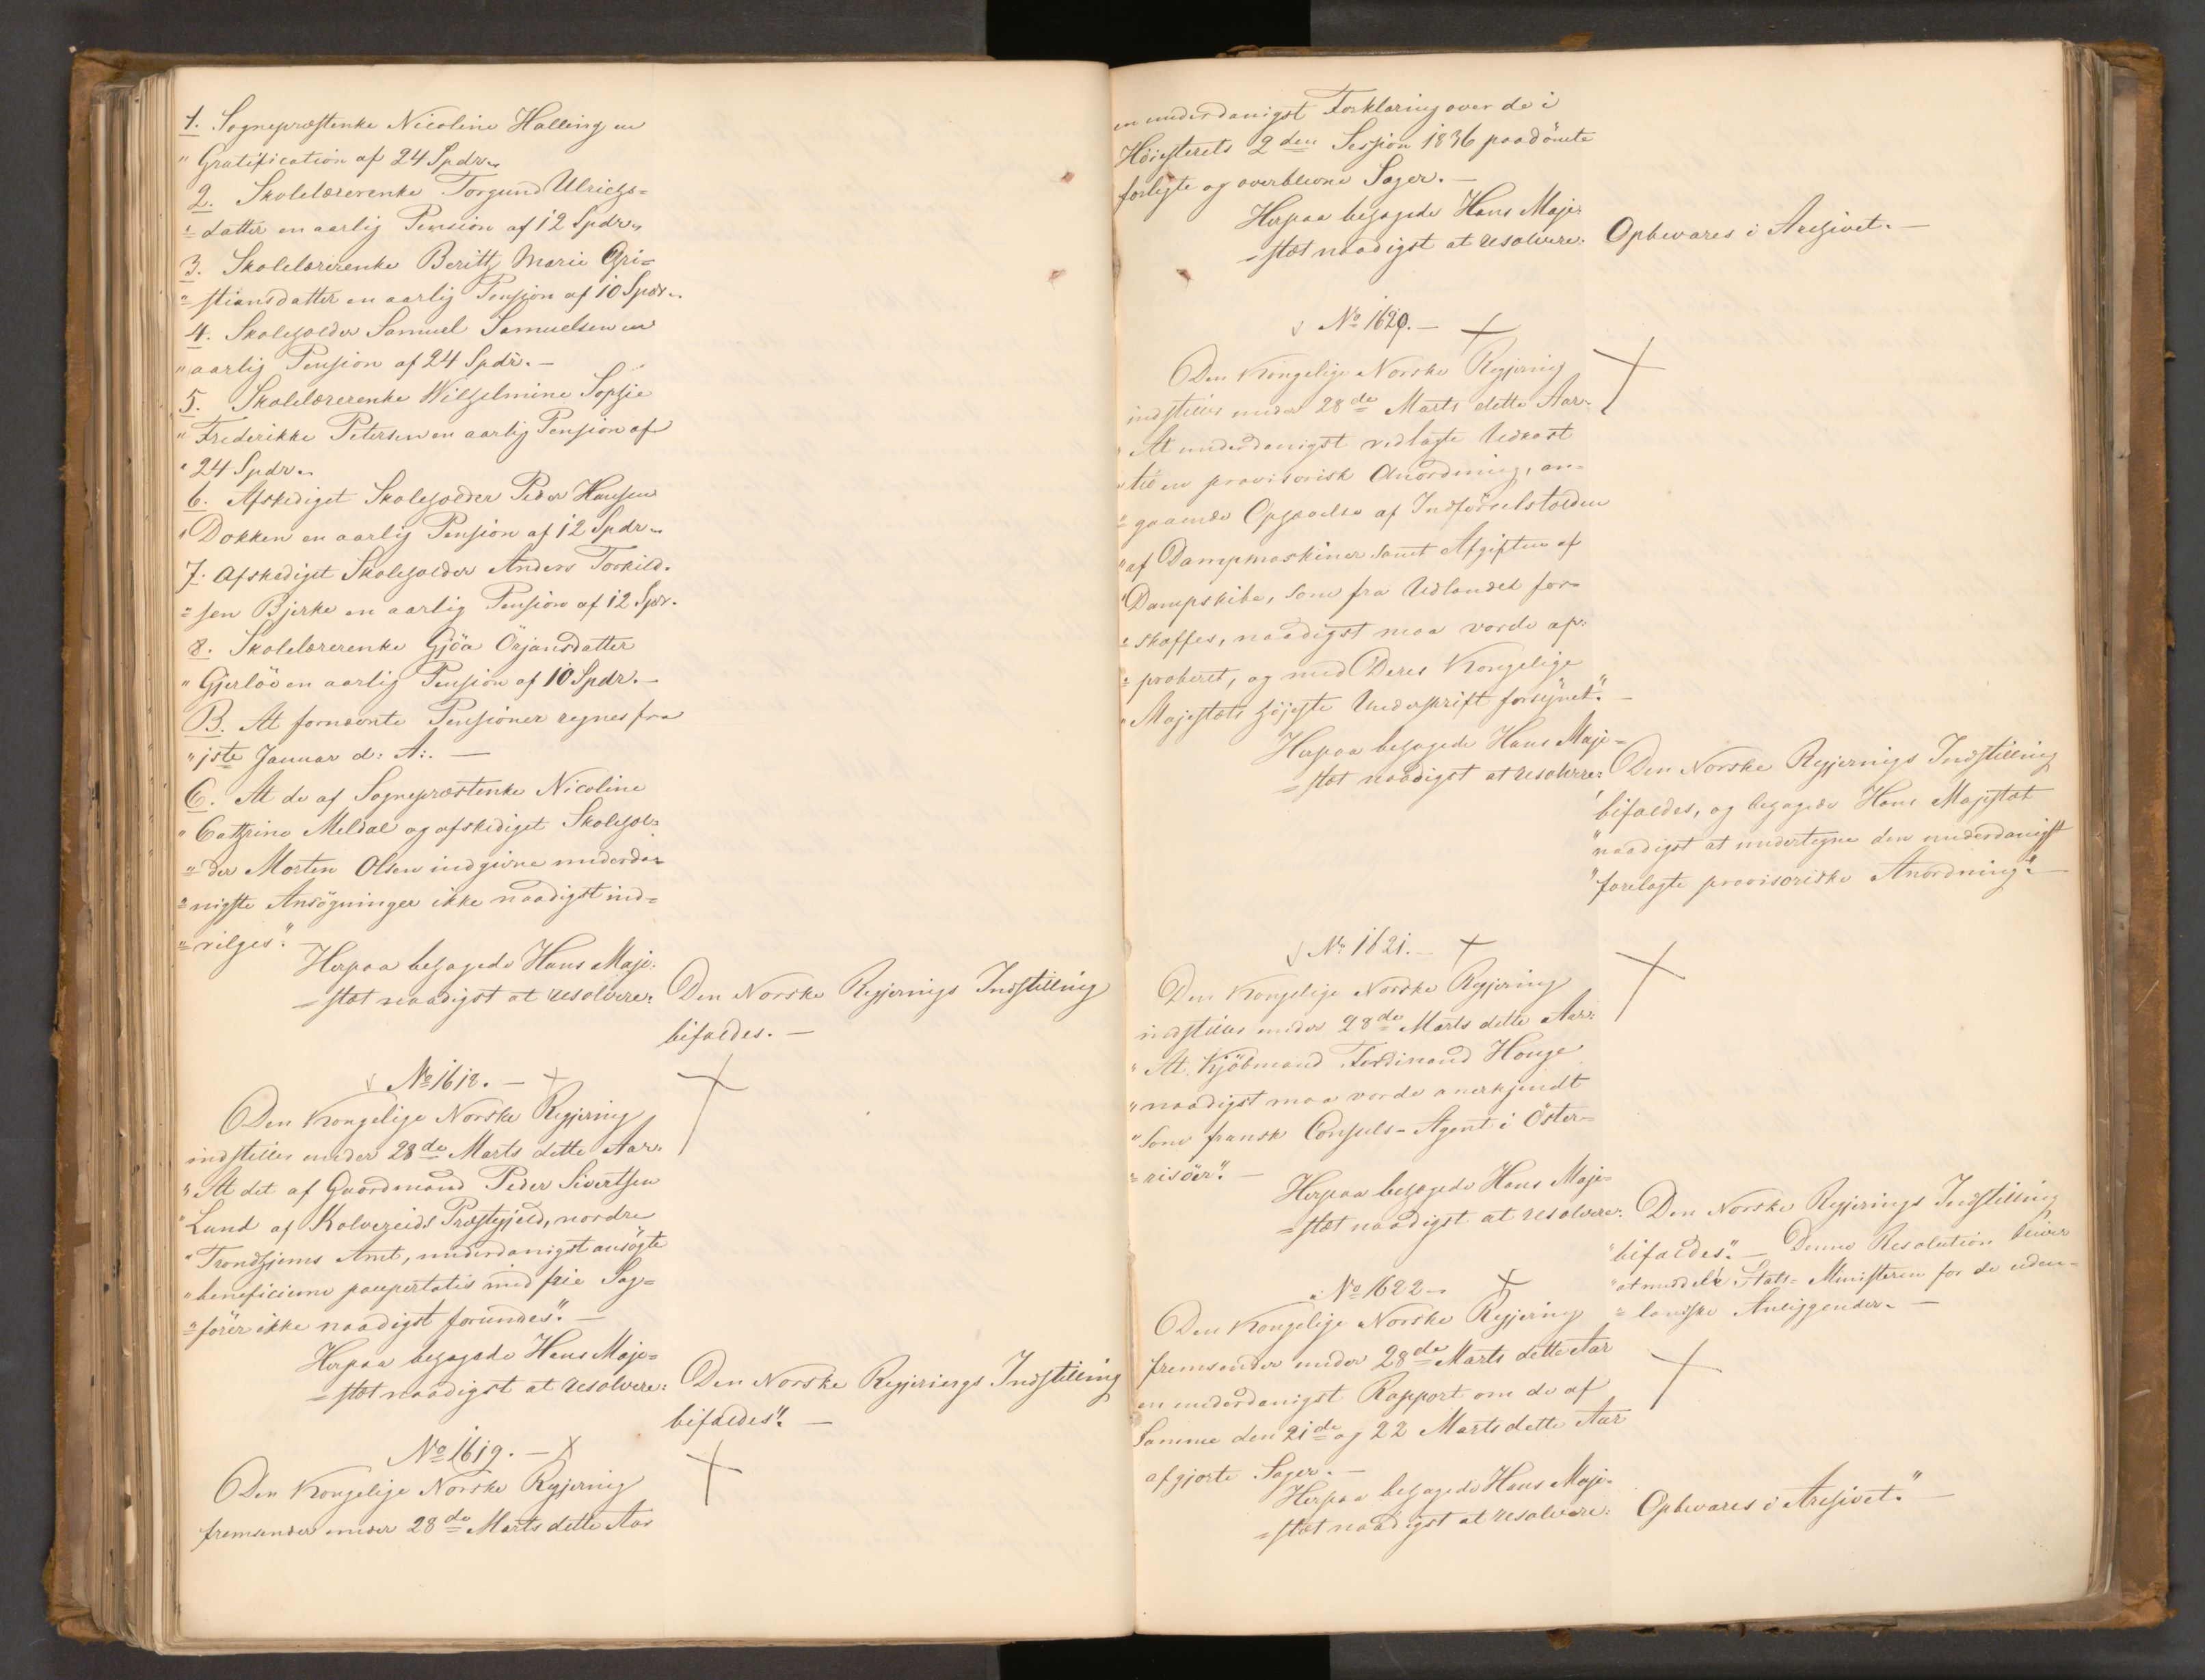 1. Sognepræstenke Nicoline Halling en
"Gratification af 24 Spdr.
2. Skolelærerenke Torgund Ulrichs=
"=datter en aarlig Pension af 12 Spdr.
3. Skolelærerenke Beritth Marie Chri=
"=stiansdatter en aarlig Pension af 10 Spdr.
4. Skoleholder Samuel Samuelsen en
"aarlig Pension af 24 Spdr.—
5. Skolelærerenke Wilhelmine Sophie
"Frederikke Petersen en aarlig Pension af
"24 Spdr.
6. Afskediget Skoleholder Peder Hansen
"Dokken en aarlig Pension af 12 Spdr.
7. Afskediget Skoleholder Anders Torkild=
=sen Bjerke en aarlig Pension af 12 Spdr.
8. Skolelærerenke Gjöa Örjansdatter
"Gjerlöv en aarlig Pension af 10 Spdr.—
B. At fornævnte Pensioner regnes fra
"1ste Januar d: A:.—
C. At de af Sognepræstenke Nicoline
"Cathrine Meldal og afskediget Skolehol=
"=der Morten Olsen indgivne underda=
"=nigste Ansögninger ikke naadigst ind=
"=vilges".—
Herpaa behagede Hans Maje=
=stæt naadigst at resolvere: Den Norske Regjerings Indstilling
bifaldes.—
No 1618.—
Den Kongelige Norske Regjering
indstiller under 28de Marts dette Aar:
"At det af Gaardmand Peder Sivertsen
"Lund af Kolvereids Præstegjeld, nordre
"Trondhjems Amt, underdanigst ansögte
"beneficium paupertatis med frie Sag=
"=förer ikke naadigst forundes".—
Herpaa behagede Hans Maje=
=stæt naadigst at resolvere: Den Norske Regjerings Indstilling
bifaldes".—
No 1619.—
Den Kongelige Norske Regjering
fremsender under 28de Marts dette Aar
en underdanigst Forklaring over de i
Höiesterets 2den Session 1836 paadömte
forligte og overblevne Sager.—
Herpaa behagede Hans Maje=
=stæt naadigst at resolvere: Opbevares i Archivet.—
No 1620.—
Den Kongelige Norske Regjering
indstiller under 28de Marts dette Aar:
"At underdanigst vedlagte Udkast
"til en provisorisk Anordning, an=
"=gaaende Ophævelse af Indförselstolden
"af Dampmaskiner samt Afgiften af
"Dampskibe, som fra Udlandet for=
"=skaffes, naadigst maa vorde ap=
"=proberet, og med Deres Kongelige
"Majestæts höjeste Underskrift forsynet".—
Herpaa behagede Hans Maje=
=stæt naadigst at resolvere: Den Norske Regjerings Indstilling
"bifaldes, og behagede Hans Majestæt
"naadigst at undertegne den underdanigst
"forelagte provisoriske Anordning".—
No 1621.—
Den Kongelige Norske Regjering
indstiller under 28de Marts dette Aar:
"At Kjöbmand Ferdinand Houge
"naadigst maa vorde anerkjendt
"som fransk Consuls=Agent i Öster=
"=risöer".—
Herpaa behagede Hans Maje=
=stæt naadigst at resolvere: Den Norske Regjerings Indstilling
"bifaldes".— Denne Resolution bliver
"at meddele Stats=Ministeren for de uden=
"=landske Anliggender.—
No 1622.
Den Kongelige Norske Regjering
fremsender under 28de Marts dette Aar
en underdanigst Rapport om de af
Samme den 21de og 22 Marts dette Aar
afgjorte Sager.—
Herpaa behagede Hans Maje=
=stæt naadigst at resolvere: Opbevares i Archivet."—